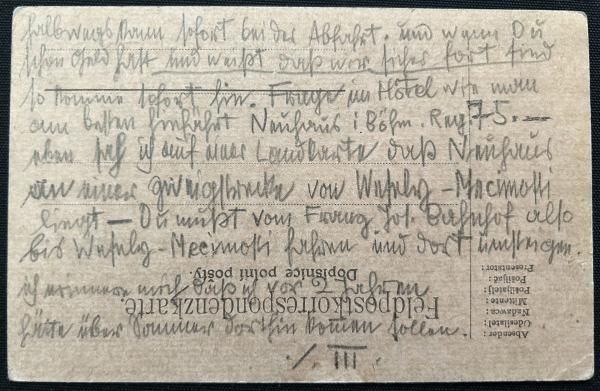 halbwegs kann sofort bei der Abfahrt. und wenn Du
schon Geld hast und weißt daß wir sicher fort sind
so komme sofort hin. Frage im Hotel wie man
am besten hinfährt Neuhaus i. Böhm. Reg 75. —
eben seh ich auf einer Landkarte daß Neuhaus
an einer Zweigstrecke von Wesely-Mecimosti
liegt — Du mußt vom Franz Jos. Bahnhof also
bis Wesely-Mecimosti fahren und dort umsteigen.
ich erinnere mich daß ich vor 2 Jahren
hätte über Sommer dorthin kommen sollen.
./. III.
Feldpostkorrespondenzkarte.
Dopisnice polní pošty.
Absender:
Odesílatel:
Nadawca:
Mittente:
Pošiljatelj:
Pošiljač:
Presentator: